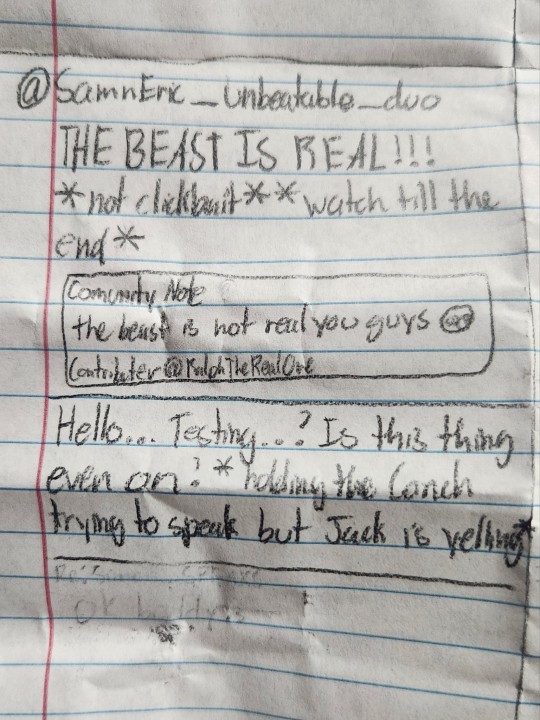 @SamnEric_Unbeatable_duo
THE BEAST IS REAL!!!
*not clickbait* *watch till the
end*
Comunity Note
the beast is not real you guys
Contributer @RalphTheRealOne
Hello... Testing...? Is this thing
even on? *holding the Conch
trying to speak but Jack is yelling*
or